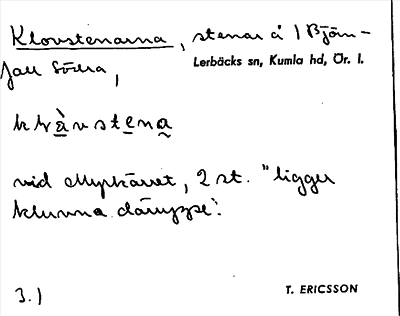 Klovstenarna, stenar å 1 Björn-
fall Södra,
Lerbäcks sn, Kumla hd, Ör. l.
klȯ̀vstena
vid Myrkärret, 2 st. "ligger
kluvna däruppe".
3.)
T. ERICSSON